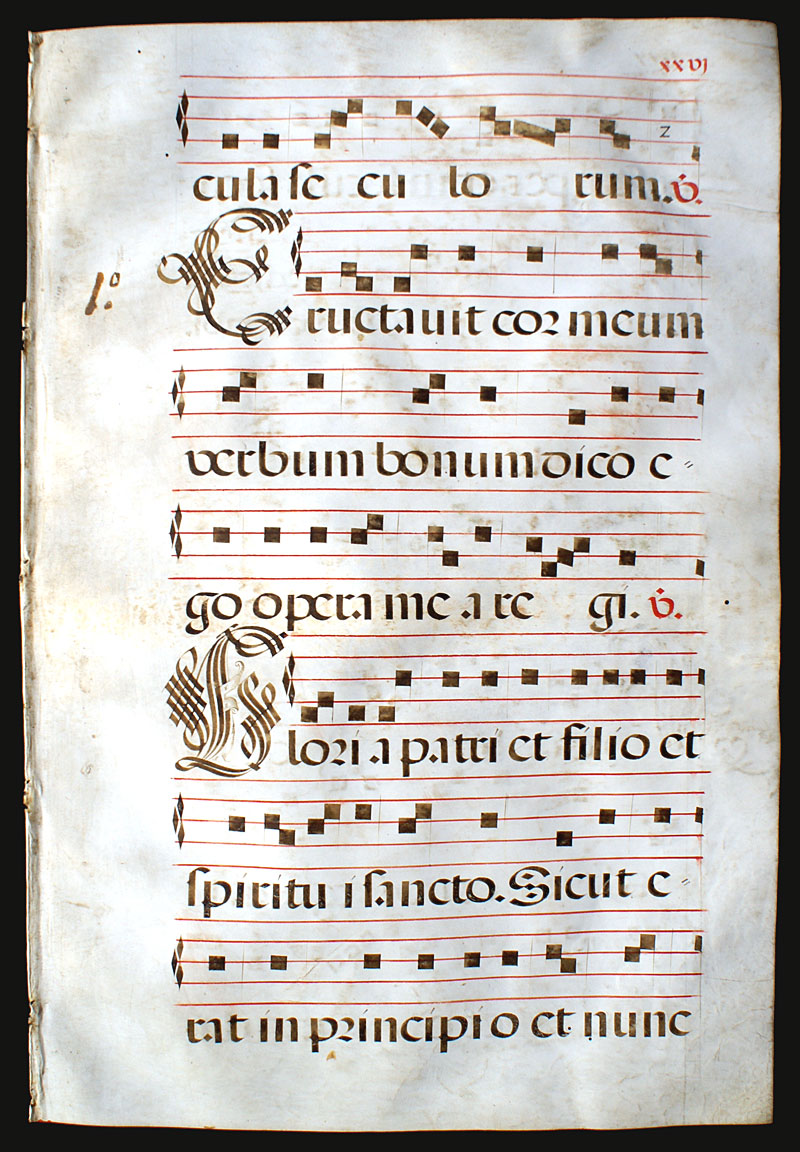 xxvj
cula se cu lo rum. v̇.
Eructauit cor meum
1.º
verbum bonum dico e=
go opera mea re gi. v̇.
Glori a patri et filio et
spiritu i sancto. Sicut e=
rat in principi o et nunc